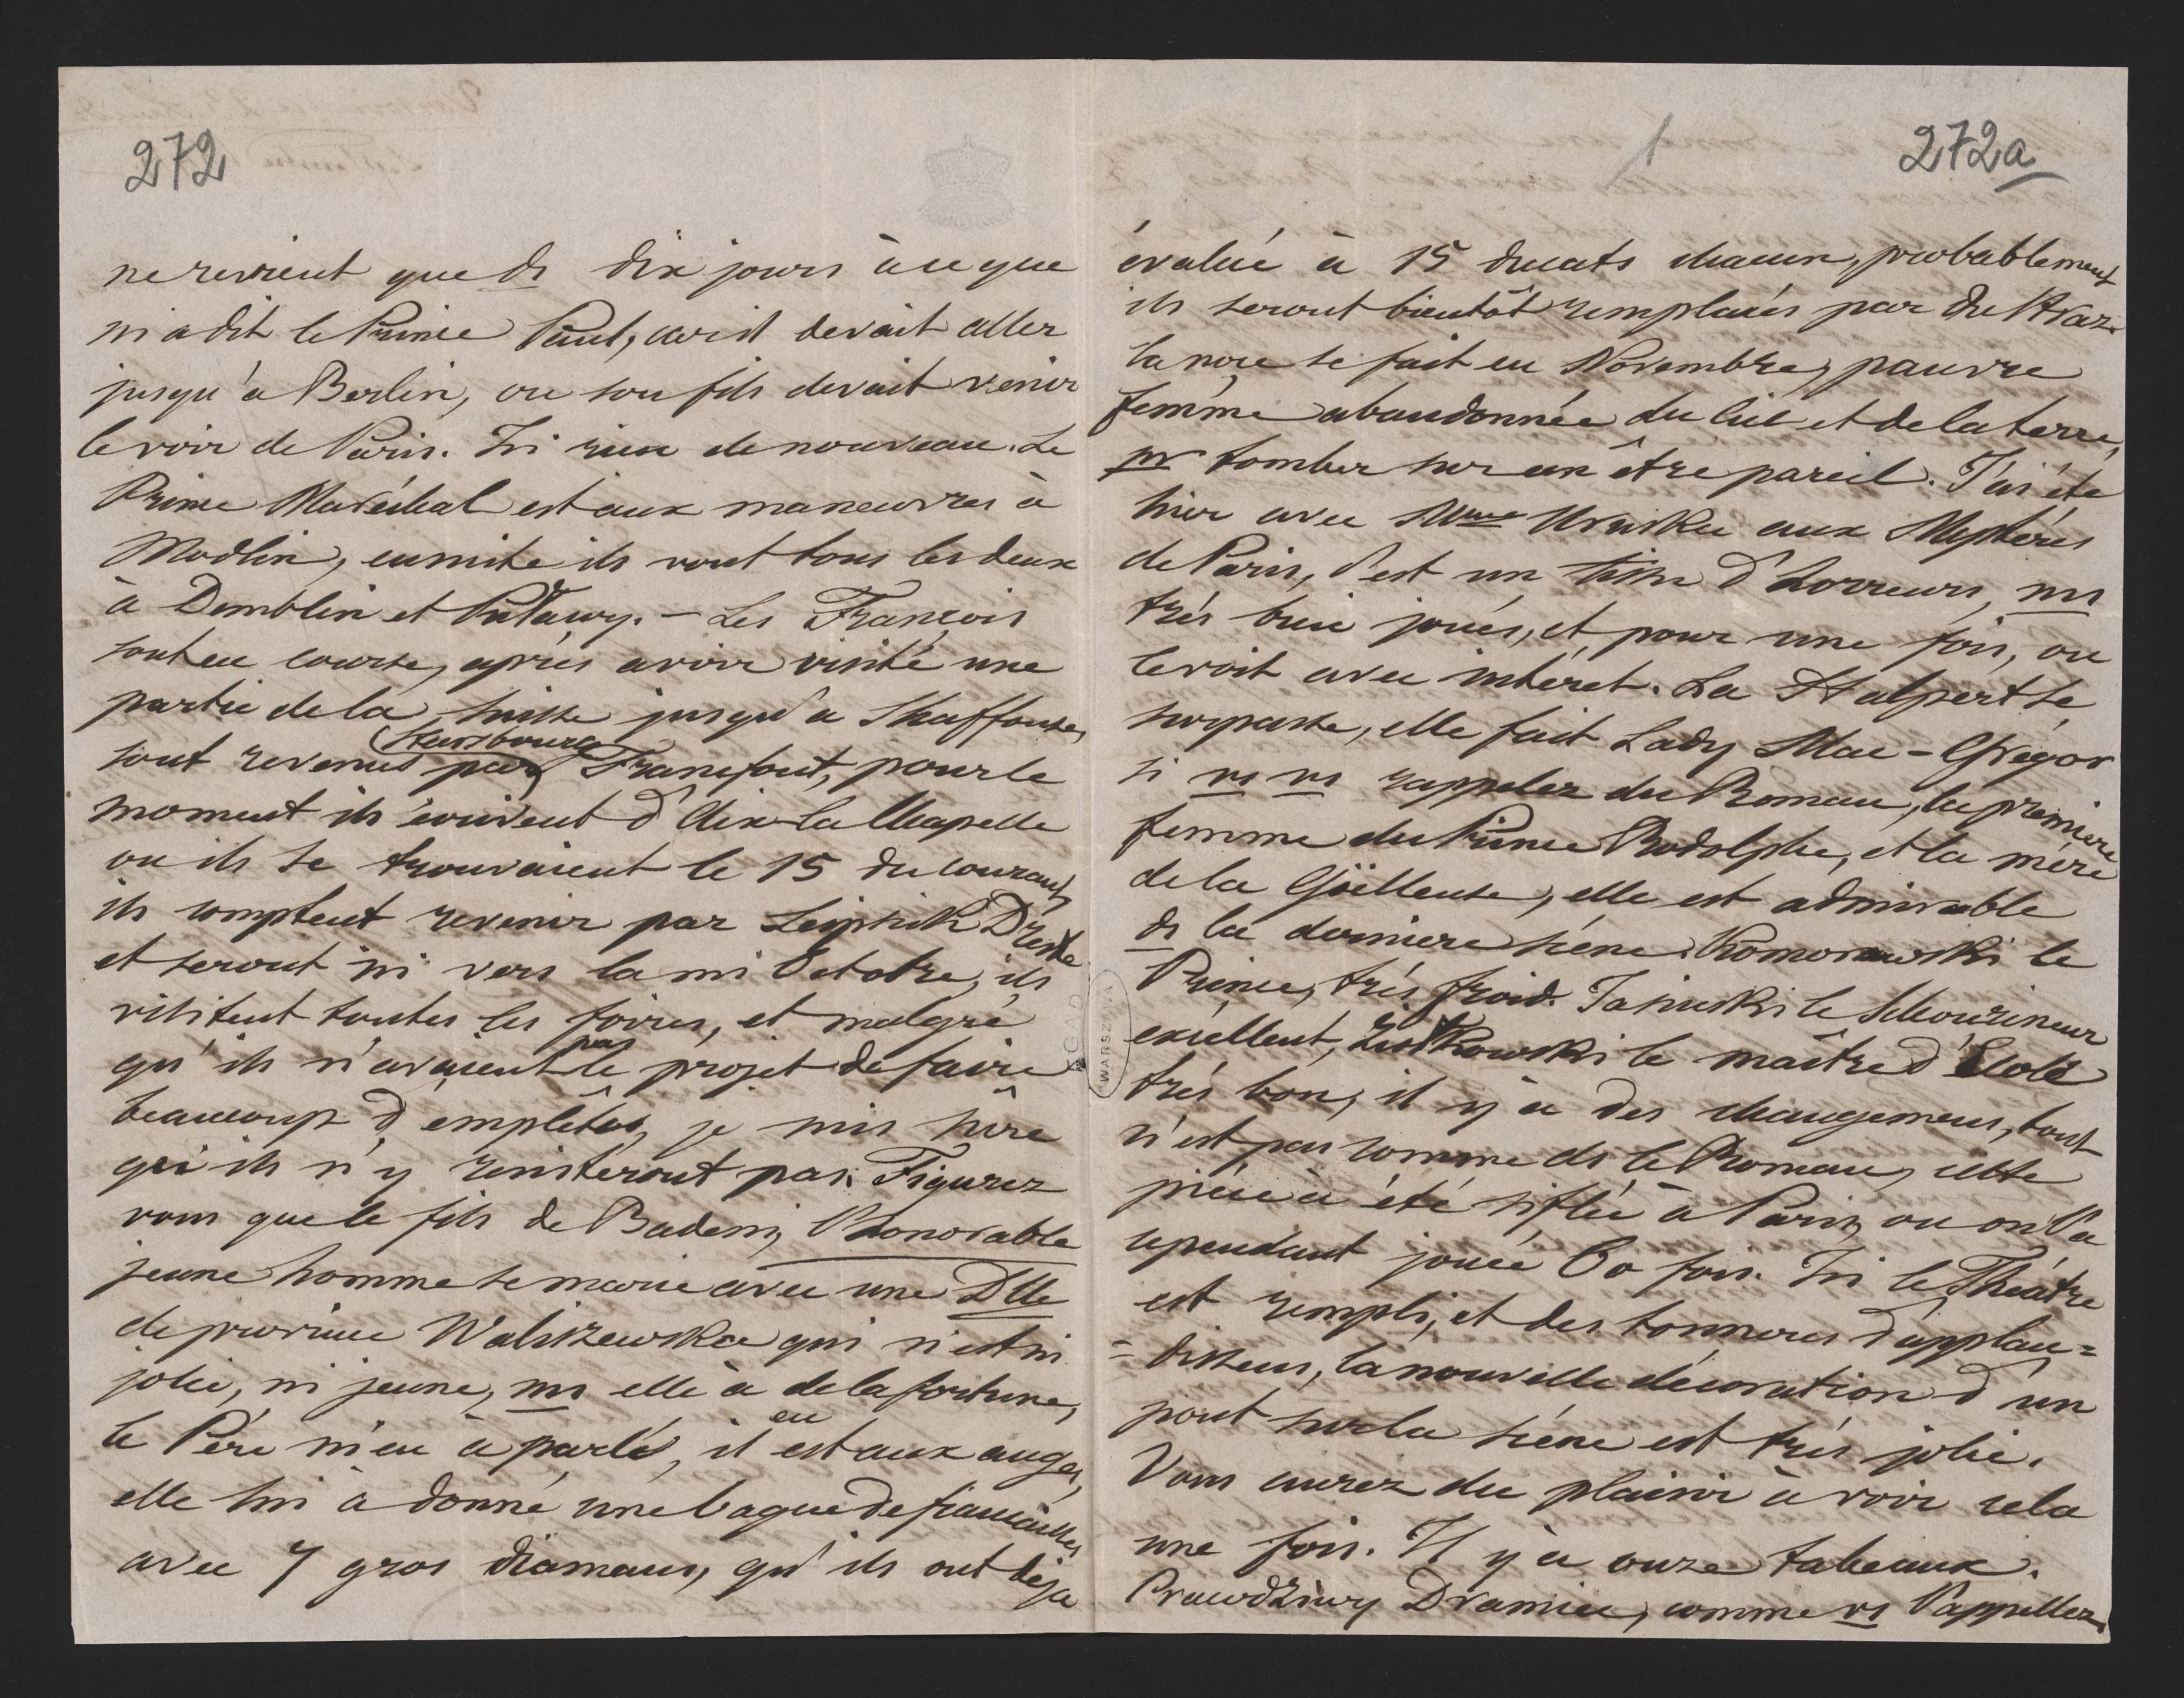 272
ne revient que ds dix jours à ce que
m'a dit le Prince Paul, car il devait aller
jusqu'a Berlin, ou son fils devait venir
le voir de Paris. Ici rien de nouveau. Le
Prince Maréchal est aux maneuvres à
Modlin, ensuite ils vont tous les deux
à Demblin et Puławy. – Les François
sont en course, après avoir visité une
partie de la Suisse jusqu'a Shaffouse,
sont revenus par (Strasbourg) Francfort, pour le
moment ils écrivent d'Aix-la Chapelle
ou ils se trouvaient le 15 du courant,
ils comptent revenir par Leipsik Dresde
et seront ici vers la mi Octobre, ils
visitent toutes les foires, et malgré
qu'ils n'avaient pas le projet de faire
beaucoup d'emplêtes, je suis sûre
qu'ils n'y resisteront pas. Figurez
vous que le fils de Badeni, l'honorable
jeune homme se marie avec une Dlle
de province Waliszewska qui n'est ni
jolie, ni jeune, ms elle à de la fortune,
le Père m'en à parlé, il en est aux anges,
elle lui à donné une bague de fiancailles
avec 7 gros diamans, qu'ils ont deja
1
272a
évalué à 15 ducats chacun, probablement
ils seront bientôt remplacés par du Straz.
la noce se fait en Novembre, pauvre
femme abandonnée du ciel et de la terre,
pr tomber sur un être pareil. J'ai été
hier avec Mme Uruska aux Mystéres
de Paris, c'est un tissu d'horreurs, ms
très bien joués, et pour une fois, on
le voit avec intéret. La Halpert se
surpasse, elle fait Lady Mac-Gregor
si vs vs rappelez du Roman, la premiere
femme du Prince Rodolphe, et la mère
de la Goilleuse, elle est admirable
ds la derniere scène. Komorowski le
Prince, très froid. Jasinski le Chourineur
excellent, Żółkowski le maître d'École
très bon, il y à des changemens, tout
n'est pas comme ds le Roman, cette
pièce à été siflée à Paris, ou on l'a
cependant jouée 60 fois. Ici le Théatre
est rempli, et des tonneres d'applau=
=dissens, la nouvelle décoration d'un
pont sur la scène est très jolie.
Vous aurez du plaisir à voir cela
une fois. Il y à onze tableaux.
Prawdziwy Dramiec, comme vs l'appellez,
WARSZAWA